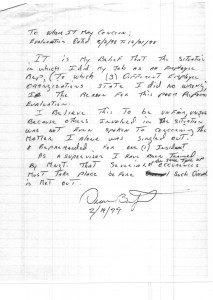 To Whom It May Concern;
Evaluation Dated 5/2/98 to 12/31/98
It is My Belief That The Situation
in which I did My Job as an Employee
Rep, (To which (3) Different Employee
Organizations State I did no wrong)
Is The Reason For This poor
Evaluation.
I Believe This To be unfair, unjust
Because others Involved in The Situation
was not Even spoken To concerning The
Matter I Alone was Singled out.
& Reprimanded, for one (1) Incident
As a supervisor I Have Been Trained
By Mgmt. That Several Occurences
of the same type
Must Take place before such Discipline
is Met out.
2/19/99